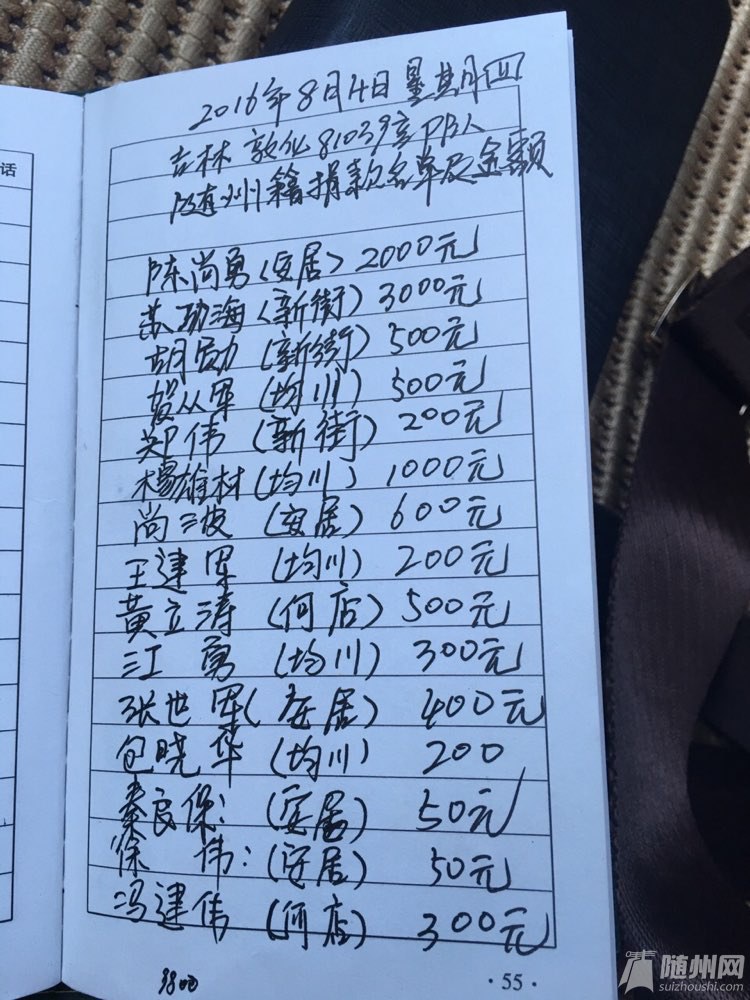 话
2016年8月4日星期四
吉林敦化81039部队
随州籍捐款名单及金额
陈尚勇(安居)2000元
苏功海(新街)3000元
胡勋(新街)500元
从军(均川)500元
郑伟(新街)200元
杨雄材(均川)1000元
尚三波(安居)600元
王建军(均川)200元
黄立涛(何店)500元
江勇(均川)300元
张世军(安居)400元
包晓华(均川)200
秦良保:(安居)50元
徐伟:(安居)50元
冯建伟(何店)300元
9800
·55·
随州网
suizhoushi.com